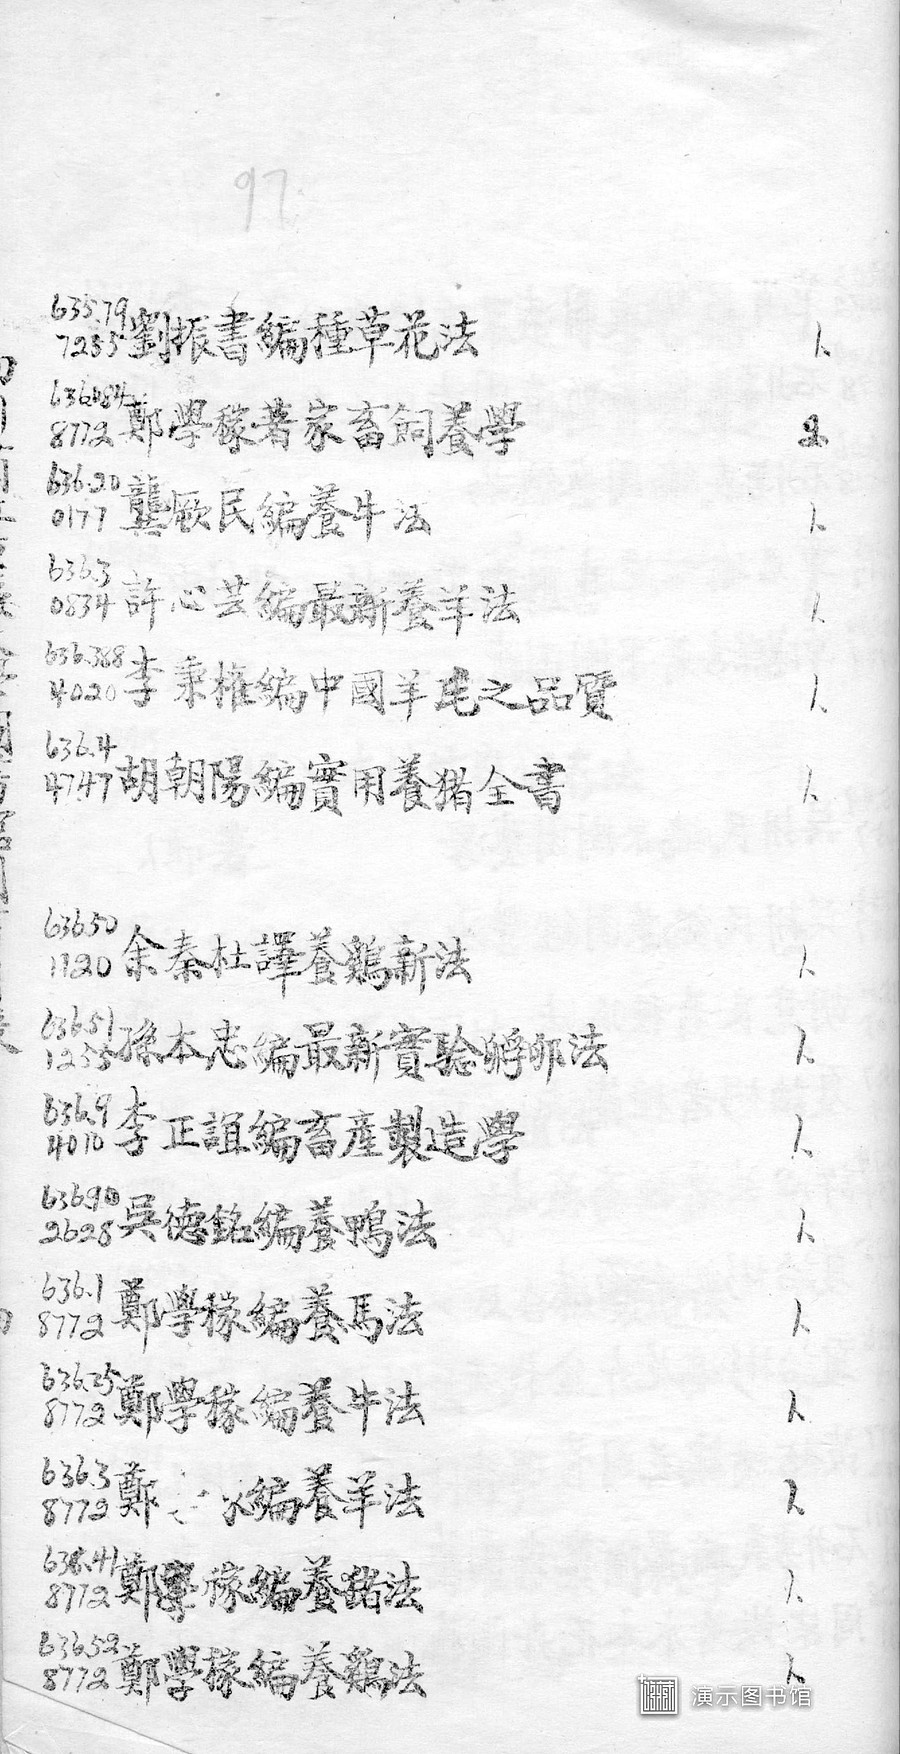 97
635.79 劉振書編種草花法 1.
7235
636.084 鄭學稼著家畜飼養學 2.
8772
636.20 龔厥民編養牛法 1.
0177
636.3 許心芸編最新養羊法 1.
0834
636.368 李秉權編中國羊毛之品質 1.
4020
636.4 胡朝陽編實用養猪全書 1.
4747
636.50 余秦杜譯養鷄新法 1.
1120
636.51 孫本忠編最新實驗孵卵法 1.
1255
636.9 李正誼編畜產製造學 1.
4010
吳德銘編養鴨法 1.
2628
636.1 鄭學稼編養馬法 1.
8772
636.25 鄭學稼編養牛法 1.
8772
636.3 鄭 編養羊法 1.
8772
636.41 鄭學稼編養豬法 1.
8772
636.52 鄭學稼編養鷄法 1.
8772
演示图书馆